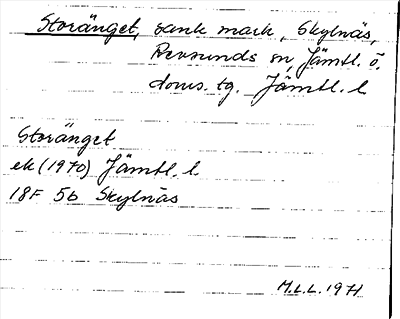 Storänget, sank mark, Skylnäs,
Revsunds sn, Jämtl. ö.
doms. tg. Jämtl. l
Storänget
ek (1970) Jämtl. l.
18F 5b Skylnäs
M.L.L. 1971